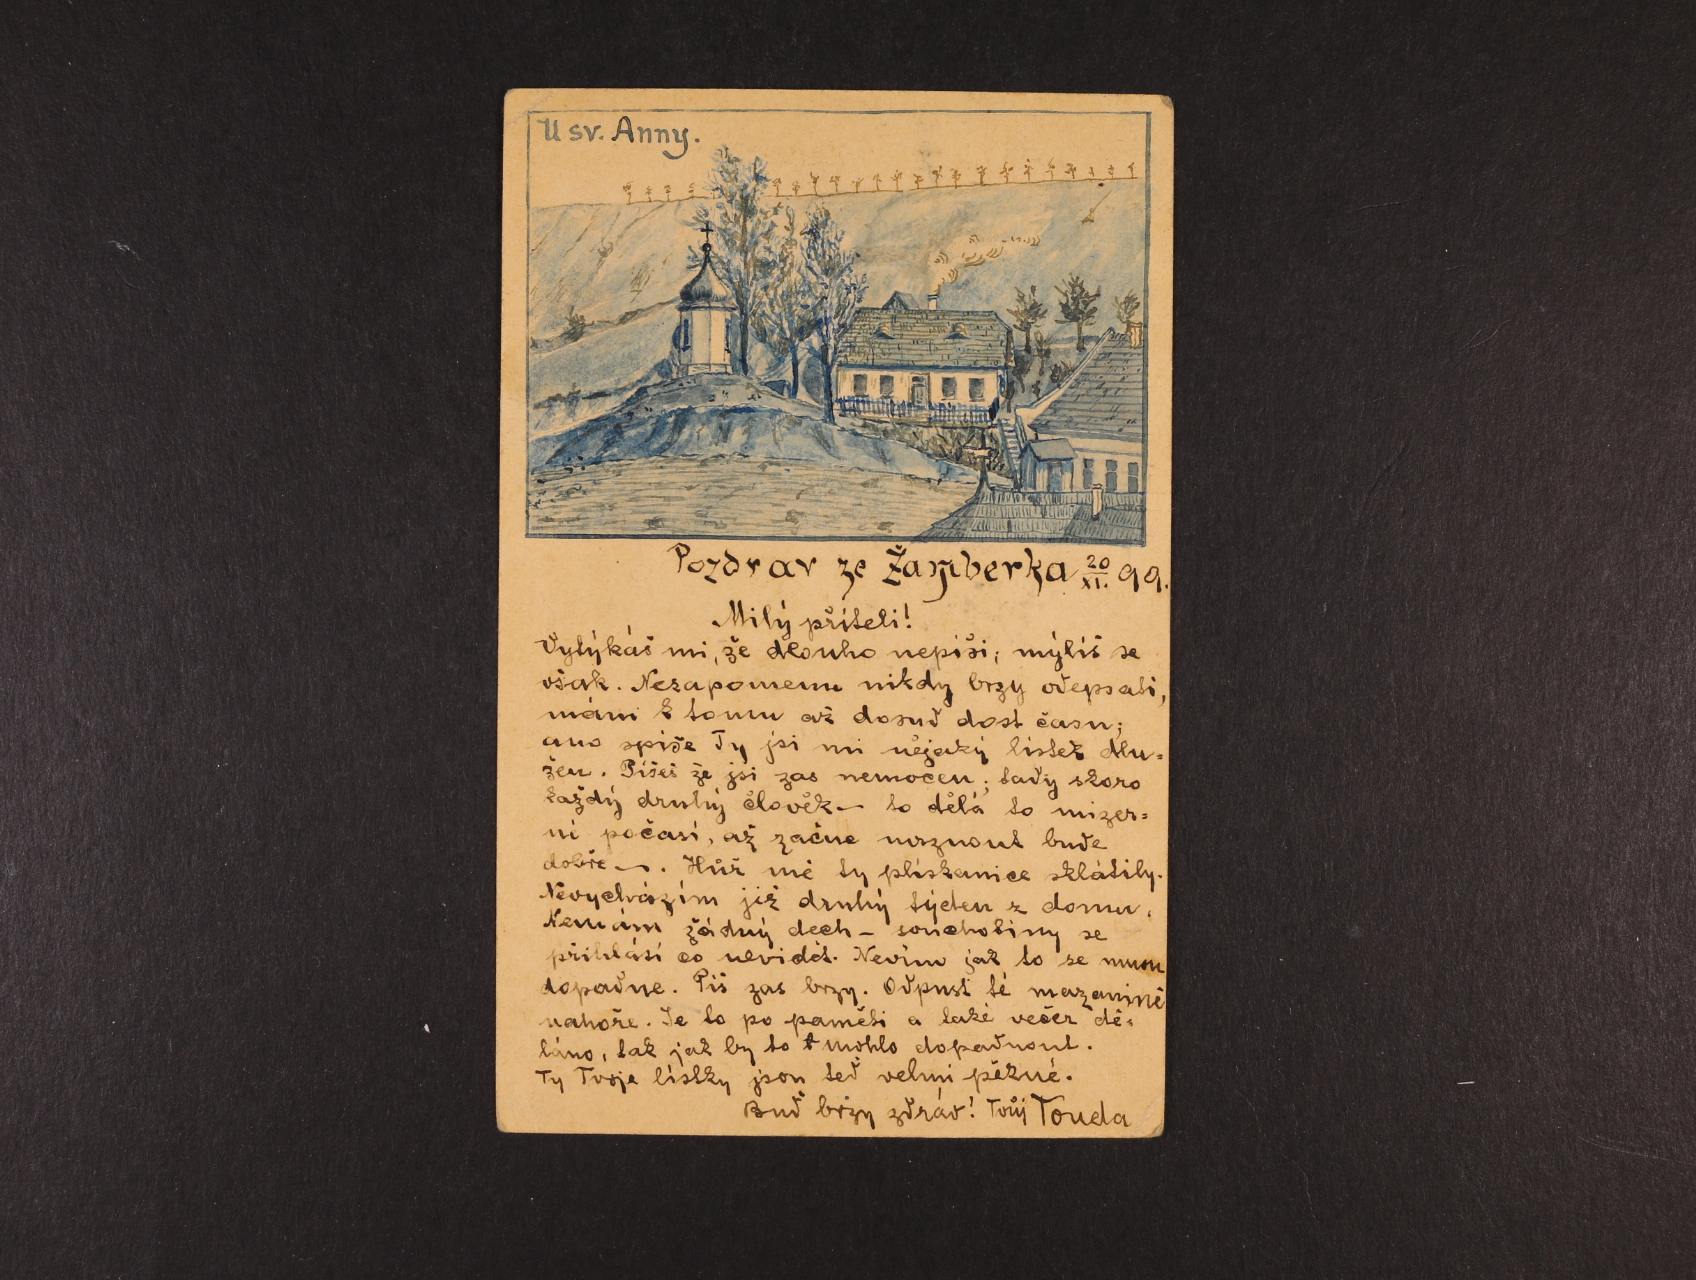 U sv. Anny.
Pozdrav ze Žamberka 20/XI. 99.
Milý příteli!
Vytýkáš mi, že dlouho nepíši; mýlíš se
však. Nezapomenu nikdy brzy odepsati,
mám k tomu až dosud dost času;
ano spíše Ty jsi mi nějaký lístek dlu-
žen. Píšeš že jsi zas nemocen; tady skoro
každý druhý člověk – to dělá to mizer-
ní počasí, až začne mrznout bude
dobře –. Hůř mě ty plískanice sklátily.
Nevycházím již druhý týden z domu.
Nemám žádný dech – souchotiny se
přihlásí co nevidět. Nevím jak to se mnou
dopadne. Piš zas brzy. Odpusť té mazanině
nahoře. Je to po paměti a také večer dě-
láno, tak jak by to mohlo dopadnout.
Ty Tvoje lístky jsou teď velmi pěkné.
Buď brzy zdráv! Tvůj Touda